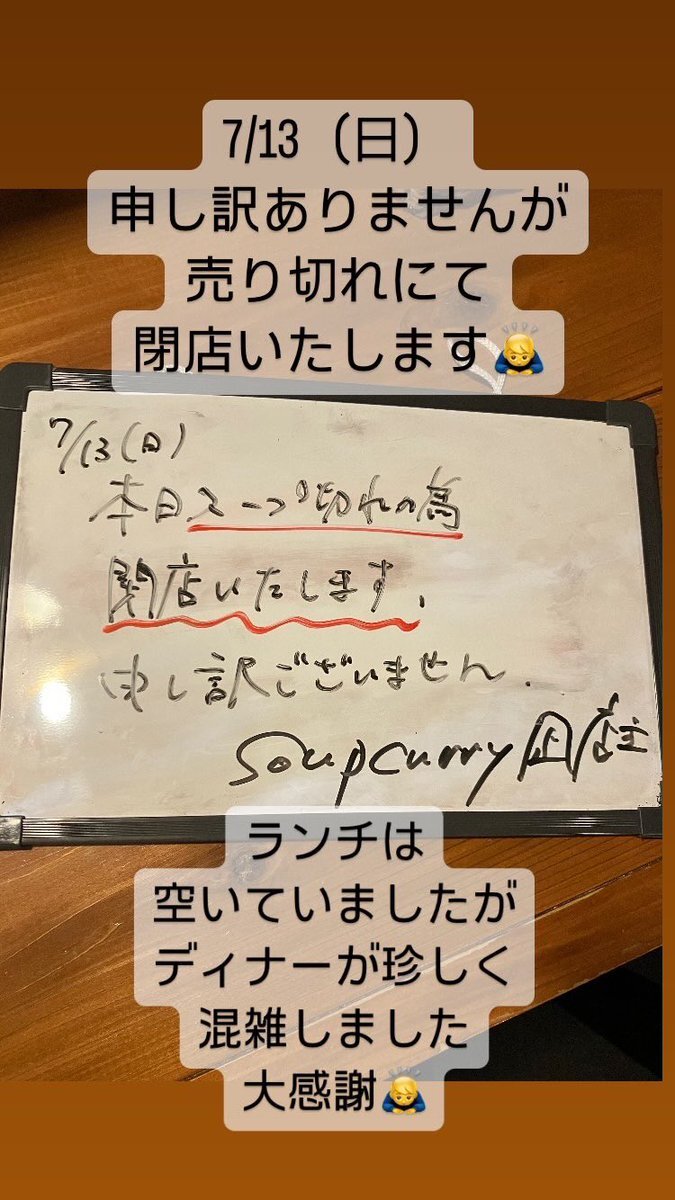 7/13（日）
申し訳ありませんが
売り切れにて
閉店いたします🙇
7/13(日)
本日スープ切れの為
閉店いたします.
申し訳ございません.
Soup curry 店主
ランチは
空いていましたが
ディナーが珍しく
混雑しました
大感謝🙇